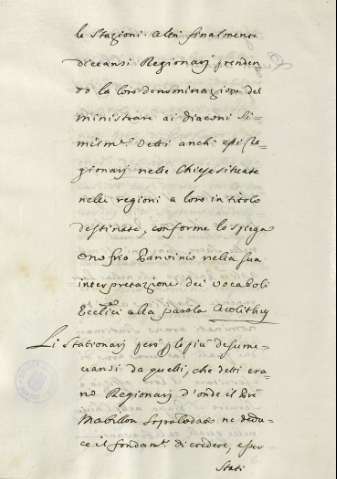 le Stazioni. Altri finalmente
diceansi Regionarj prenden=
do la loro denominazione del
ministrare ai diaconi Si=
milm.e Detti anch' essi Re=
gionarj nelle Chiese situate
nelle regioni a loro in titolo
destinate, conforme lo spiega
Onofrio Panvinio nella sua
interpretazione dei vocaboli
Eccl.ici alla parola Acolithy
Li Stationarj però p lo più desume=
vansi da quelli, che detti era=
no Regionarj d'onde il P.re
Mabillon Sopralodato ne dedu=
ce il fondam.to di credere, esser
Stati